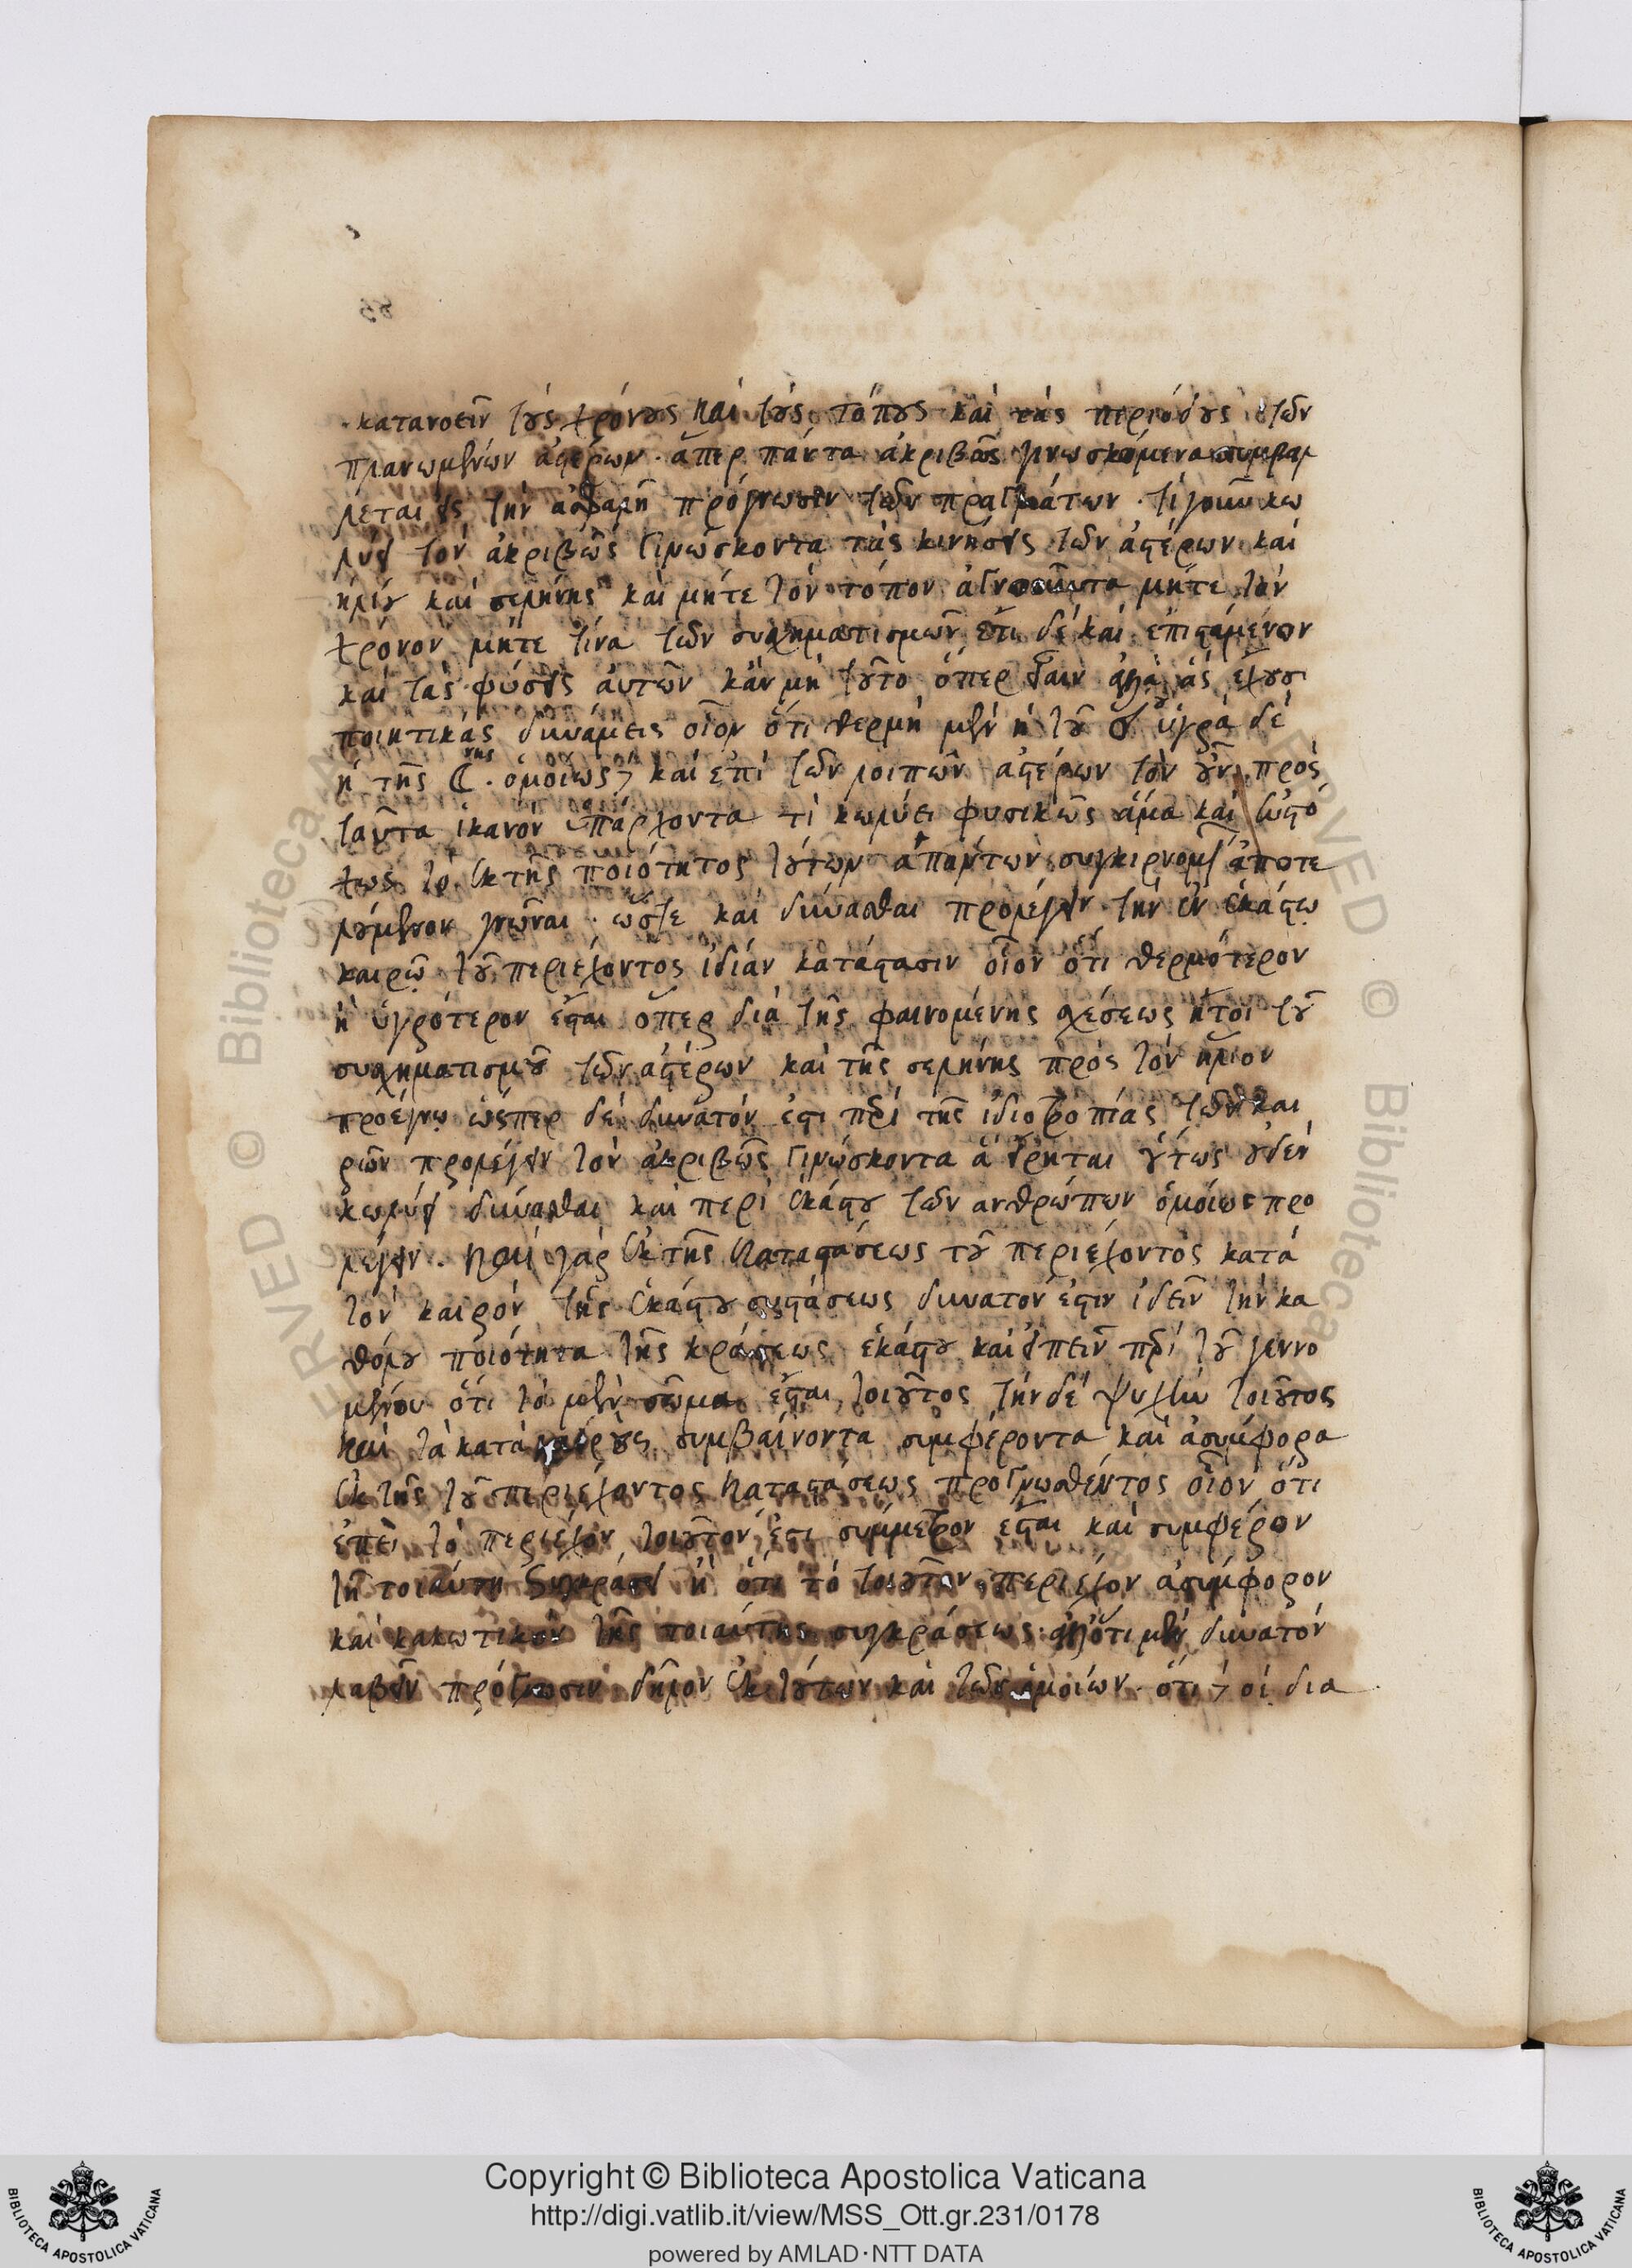 κατανοεῖν τοὺς χρόνους καὶ τοὺς τόπους καὶ τὰς περιόδους τῶν
πλανωμένων ἀστέρων. ἅπερ πάντα ἀκριβῶς γινωσκόμενα συμβάλ
λεται εἰς τὴν ἀσφαλῆ πρόγνωσιν τῶν πραγμάτων. τί γοῦν κω
λύει τὸν ἀκριβῶς γινώσκοντα τὰς κινήσεις τῶν ἀστέρων καὶ
ἡλίου καὶ σελήνης καὶ μήτε τὸν τόπον ἀγνοοῦντα μήτε τὸν
χρόνον μήτε τινὰ τῶν συσχηματισμῶν ἔτι δὲ καὶ ἐπιστάμενον
καὶ τὰς φύσεις αὐτῶν κἂν μὴ τοῦτο ὅπερ ἐστὶν ἀλλὰ ἃς ἔχουσι
ποιητικὰς δυνάμεις οἷον ὅτι θερμὴ μὲν ἡ τοῦ ὑγρὰ δὲ
ἡ τῆς ☾ης. ὁμοίως καὶ ἐπὶ τῶν λοιπῶν ἀστέρων τὸν οὖν πρὸς
ταῦτα ἱκανὸν ὑπάρχοντα τί κωλύει φυσικῶς ἅμα καὶ εὐστό
χως τὸ ἐκ τῆς ποιότητος τούτων ἁπάντων συγκιρνομένων ἀποτε
λούμενον γνῶναι. ὥστε καὶ δύνασθαι προλέγειν τὴν ἐν ἑκάστῳ
καιρῷ τοῦ περιέχοντος ἰδίαν κατάστασιν οἷον ὅτι θερμότερον
ἢ ὑγρότερον ἔσται ὅπερ διὰ τῆς φαινομένης σχέσεως ἤτοι τοῦ
συσχηματισμοῦ τῶν ἀστέρων καὶ τῆς σελήνης πρὸς τὸν ἥλιον
προέγνω ὥσπερ δὲ δυνατόν ἐστι περὶ τῆς ἰδιοτροπίας τῶν και
ρῶν προλέγειν τὸν ἀκριβῶς γινώσκοντα ἃ εἴρηται οὕτως οὐδὲν
κωλύει δύνασθαι καὶ περὶ ἑκάστου τῶν ἀνθρώπων ὁμοίως προ
λέγειν. καὶ γὰρ ἐκ τῆς καταστάσεως τοῦ περιέχοντος κατὰ
τὸν καιρὸν τῆς ἑκάστου συστάσεως δυνατόν ἐστιν ἰδεῖν τὴν κα
θόλου ποιότητα τῆς κράσεως ἑκάστου καὶ εἰπεῖν περὶ τοῦ γεννο
μένου ὅτι τὸ μὲν σῶμα ἔσται τοιοῦτος τὴν δὲ ψυχὴν τοιοῦτος
καὶ τὰ κατὰ καιροὺς συμβαίνοντα συμφέροντα καὶ ἀσύμφορα
ἐκ τῆς τοῦ περιέχοντος καταστάσεως προγνωσθέντος οἷον ὅτι
ἐπεὶ τὸ περιέχον τοιοῦτόν ἐστι σύμμετρον ἔσται καὶ συμφέρον
τῇ τοιαύτῃ συγκράσει ἢ ὅτι τὸ τοιοῦτον περιέχον ἀσύμφορον
καὶ κακωτικὸν τῆς τοιαύτης συγκράσεως. ἀλλ' ὅτι μὲν δυνατὸν
λαβεῖν πρόγνωσιν δῆλον ἐκ τούτων καὶ τῶν ὁμοίων. ὅτι δὲ οἱ δια
Copyright © Biblioteca Apostolica Vaticana
http://digi.vatlib.it/view/MSS_Ott.gr.231/0178
powered by AMLAD·NTT DATA